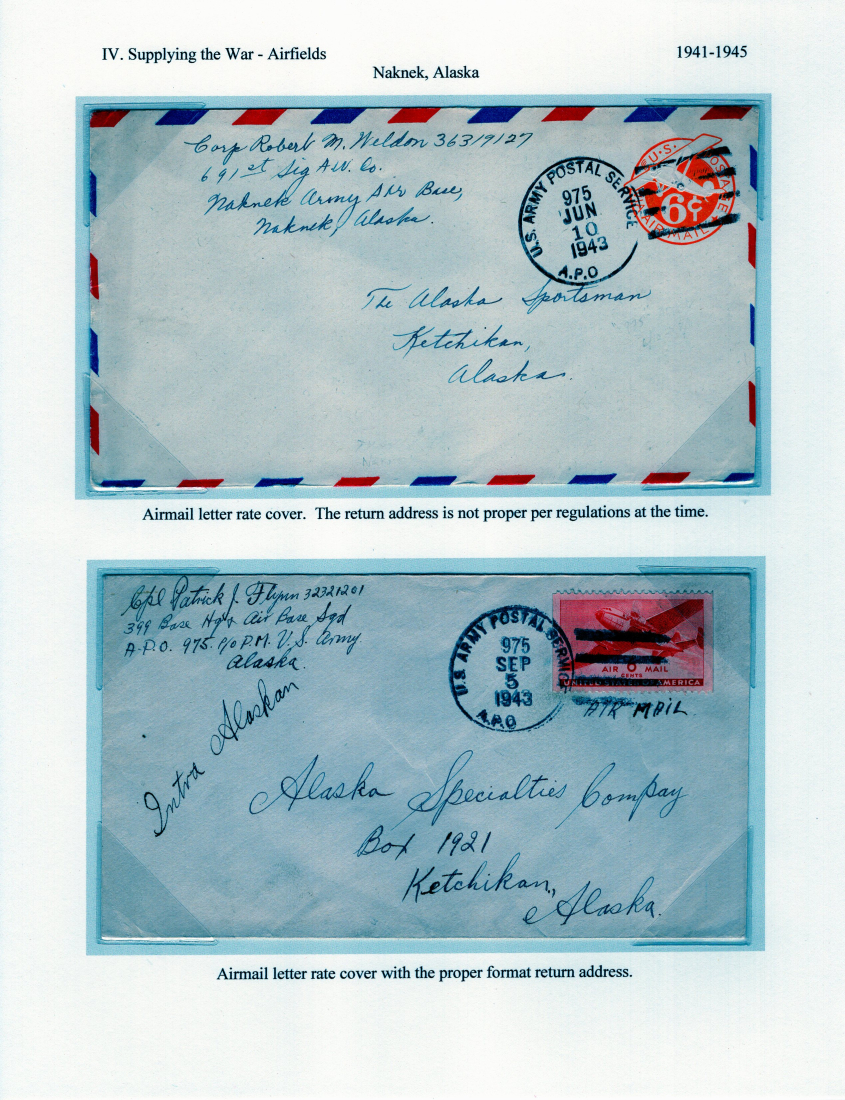 IV. Supplying the War - Airfields
1941-1945
Naknek, Alaska
Corp Robert M. Weldon 36319127
691st Sig A.W. Co.
Naknek Army Air Base,
Naknek, Alaska.
U.S. ARMY POSTAL SERVICE
975
JUN
10
1943
A.P.O
U.S. POSTAGE
6¢
AIR MAIL
The Alaska Sportsman
Ketchikan,
Alaska.
Airmail letter rate cover. The return address is not proper per regulations at the time.
Cpl Patrick J. Flynn 32321201
399 Base Hq & Air Base Sqd
A.P.O. 975. c/o P.M. U.S. Army
Alaska.
Intra Alaskan
U.S. ARMY POSTAL SERVICE
975
SEP
5
1943
A.P.O
AIR 6 MAIL
CENTS
UNITED STATES OF AMERICA
AIR MAIL
Alaska Specialties Compay
Box 1921
Ketchikan,
Alaska.
Airmail letter rate cover with the proper format return address.